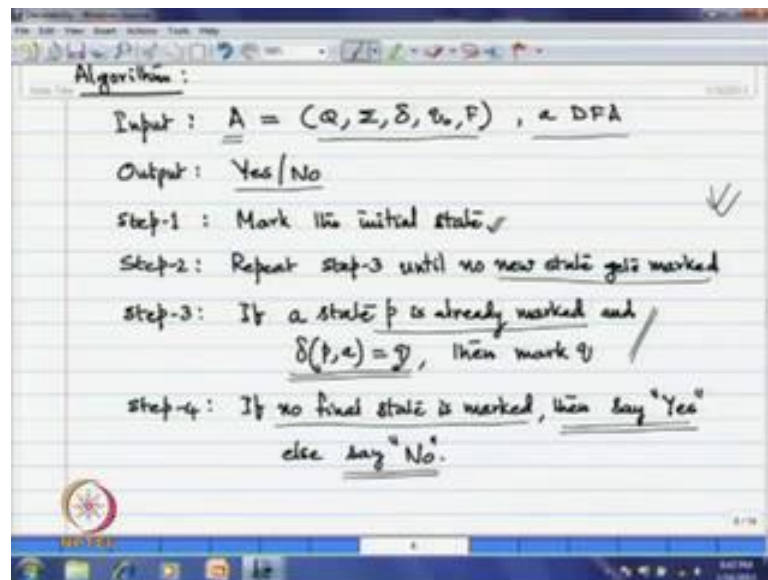 Algorithm :
Input : A = (Q, Σ, δ, q₀, F) , a DFA
Output : Yes/No
Step-1 : Mark the initial state
Step-2 : Repeat step-3 until no new state gets marked
Step-3 : If a state p is already marked and
δ(p,a) = q, then mark q
Step-4 : If no final state is marked, then say "Yes"
else say "No".
NPTEL